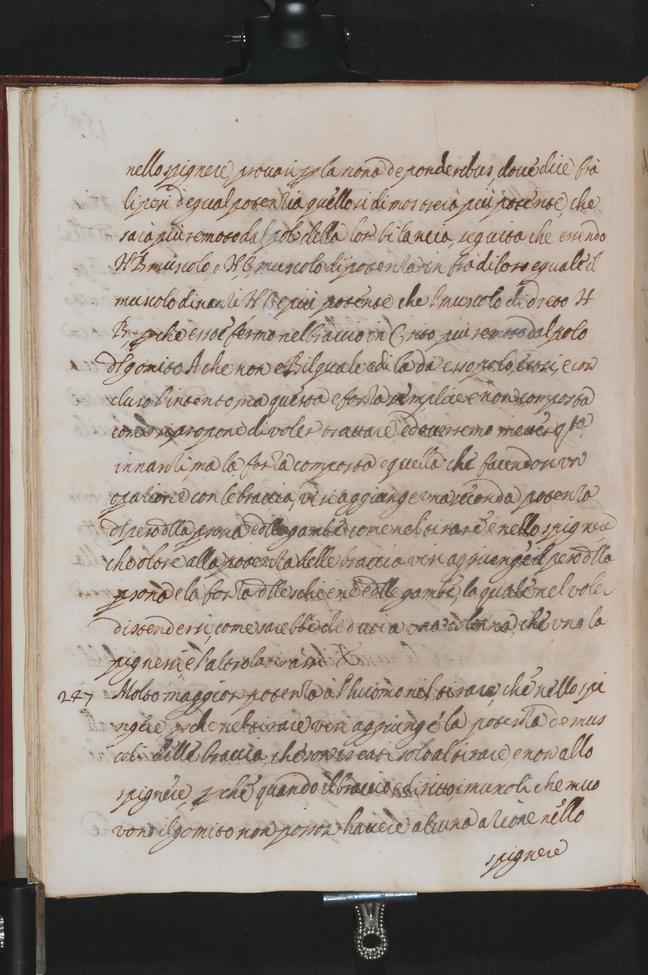 nello spignere, provasi p la nona de ponderibus dove dice fra
li pesi d'egual potentia quello si dimostrera piu potente, che
sara piu remoto dal polo della lor bilancia, seguita che essendo
muscolo e muscolo di potentia in fra di loro equali il
muscolo dinanti e piu potente che l muscolo di dreto
perche esso e fermo nel braccio in C sito piu remoto dal polo
del gomito A che non e B il quale e di la da esso polo et cosi e con
cluso l'intento ma questa e forza semplice e non composta
come si propone di voler trattare e doverremo metter
innanti, ma la forza composta e quella che facendosi un
operatione con le braccia, vi si aggiunge una seconda potentia
del peso della psona e delle gambe come nel tirare e nello spignere
che oltre alla potentia delle braccia vi si aggiunge il peso della
psona e la forza delle schiene e delle gambe la quale nel voler
distendersi, come sarebbe di dui a una colonna, che uno la
pignessi e l'altro la tirassi
247 Molto maggior potentia à l'huomo nel tirare, che nello spi
ngere perche nel tirare vi si aggiunge la potentia de mus
coli delle braccia, che son creati solo al tirare, e non allo
spignere, perche quando il braccio e diritto i muscoli che muo
vono il gomito non posson havere alcuna azione nello
spignere